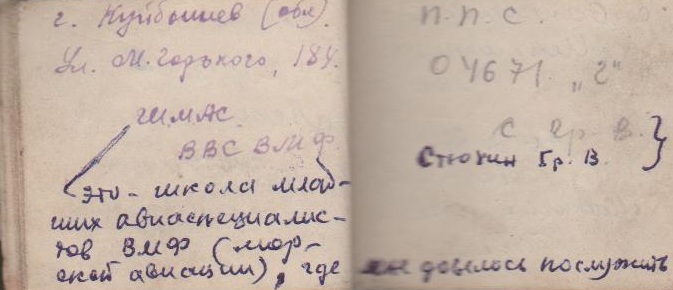 г. Куйбышев (обл.)
Ул. М. Горького, 184.
ШМАС
ВВС ВМФ.
(это - школа млад-
ших авиаспециалис-
тов ВМФ (мор-
ской авиации), где
п.п.с.
04671 „г"
с гр. В.
Стюхин Гр. В. }
мне довелось послужить